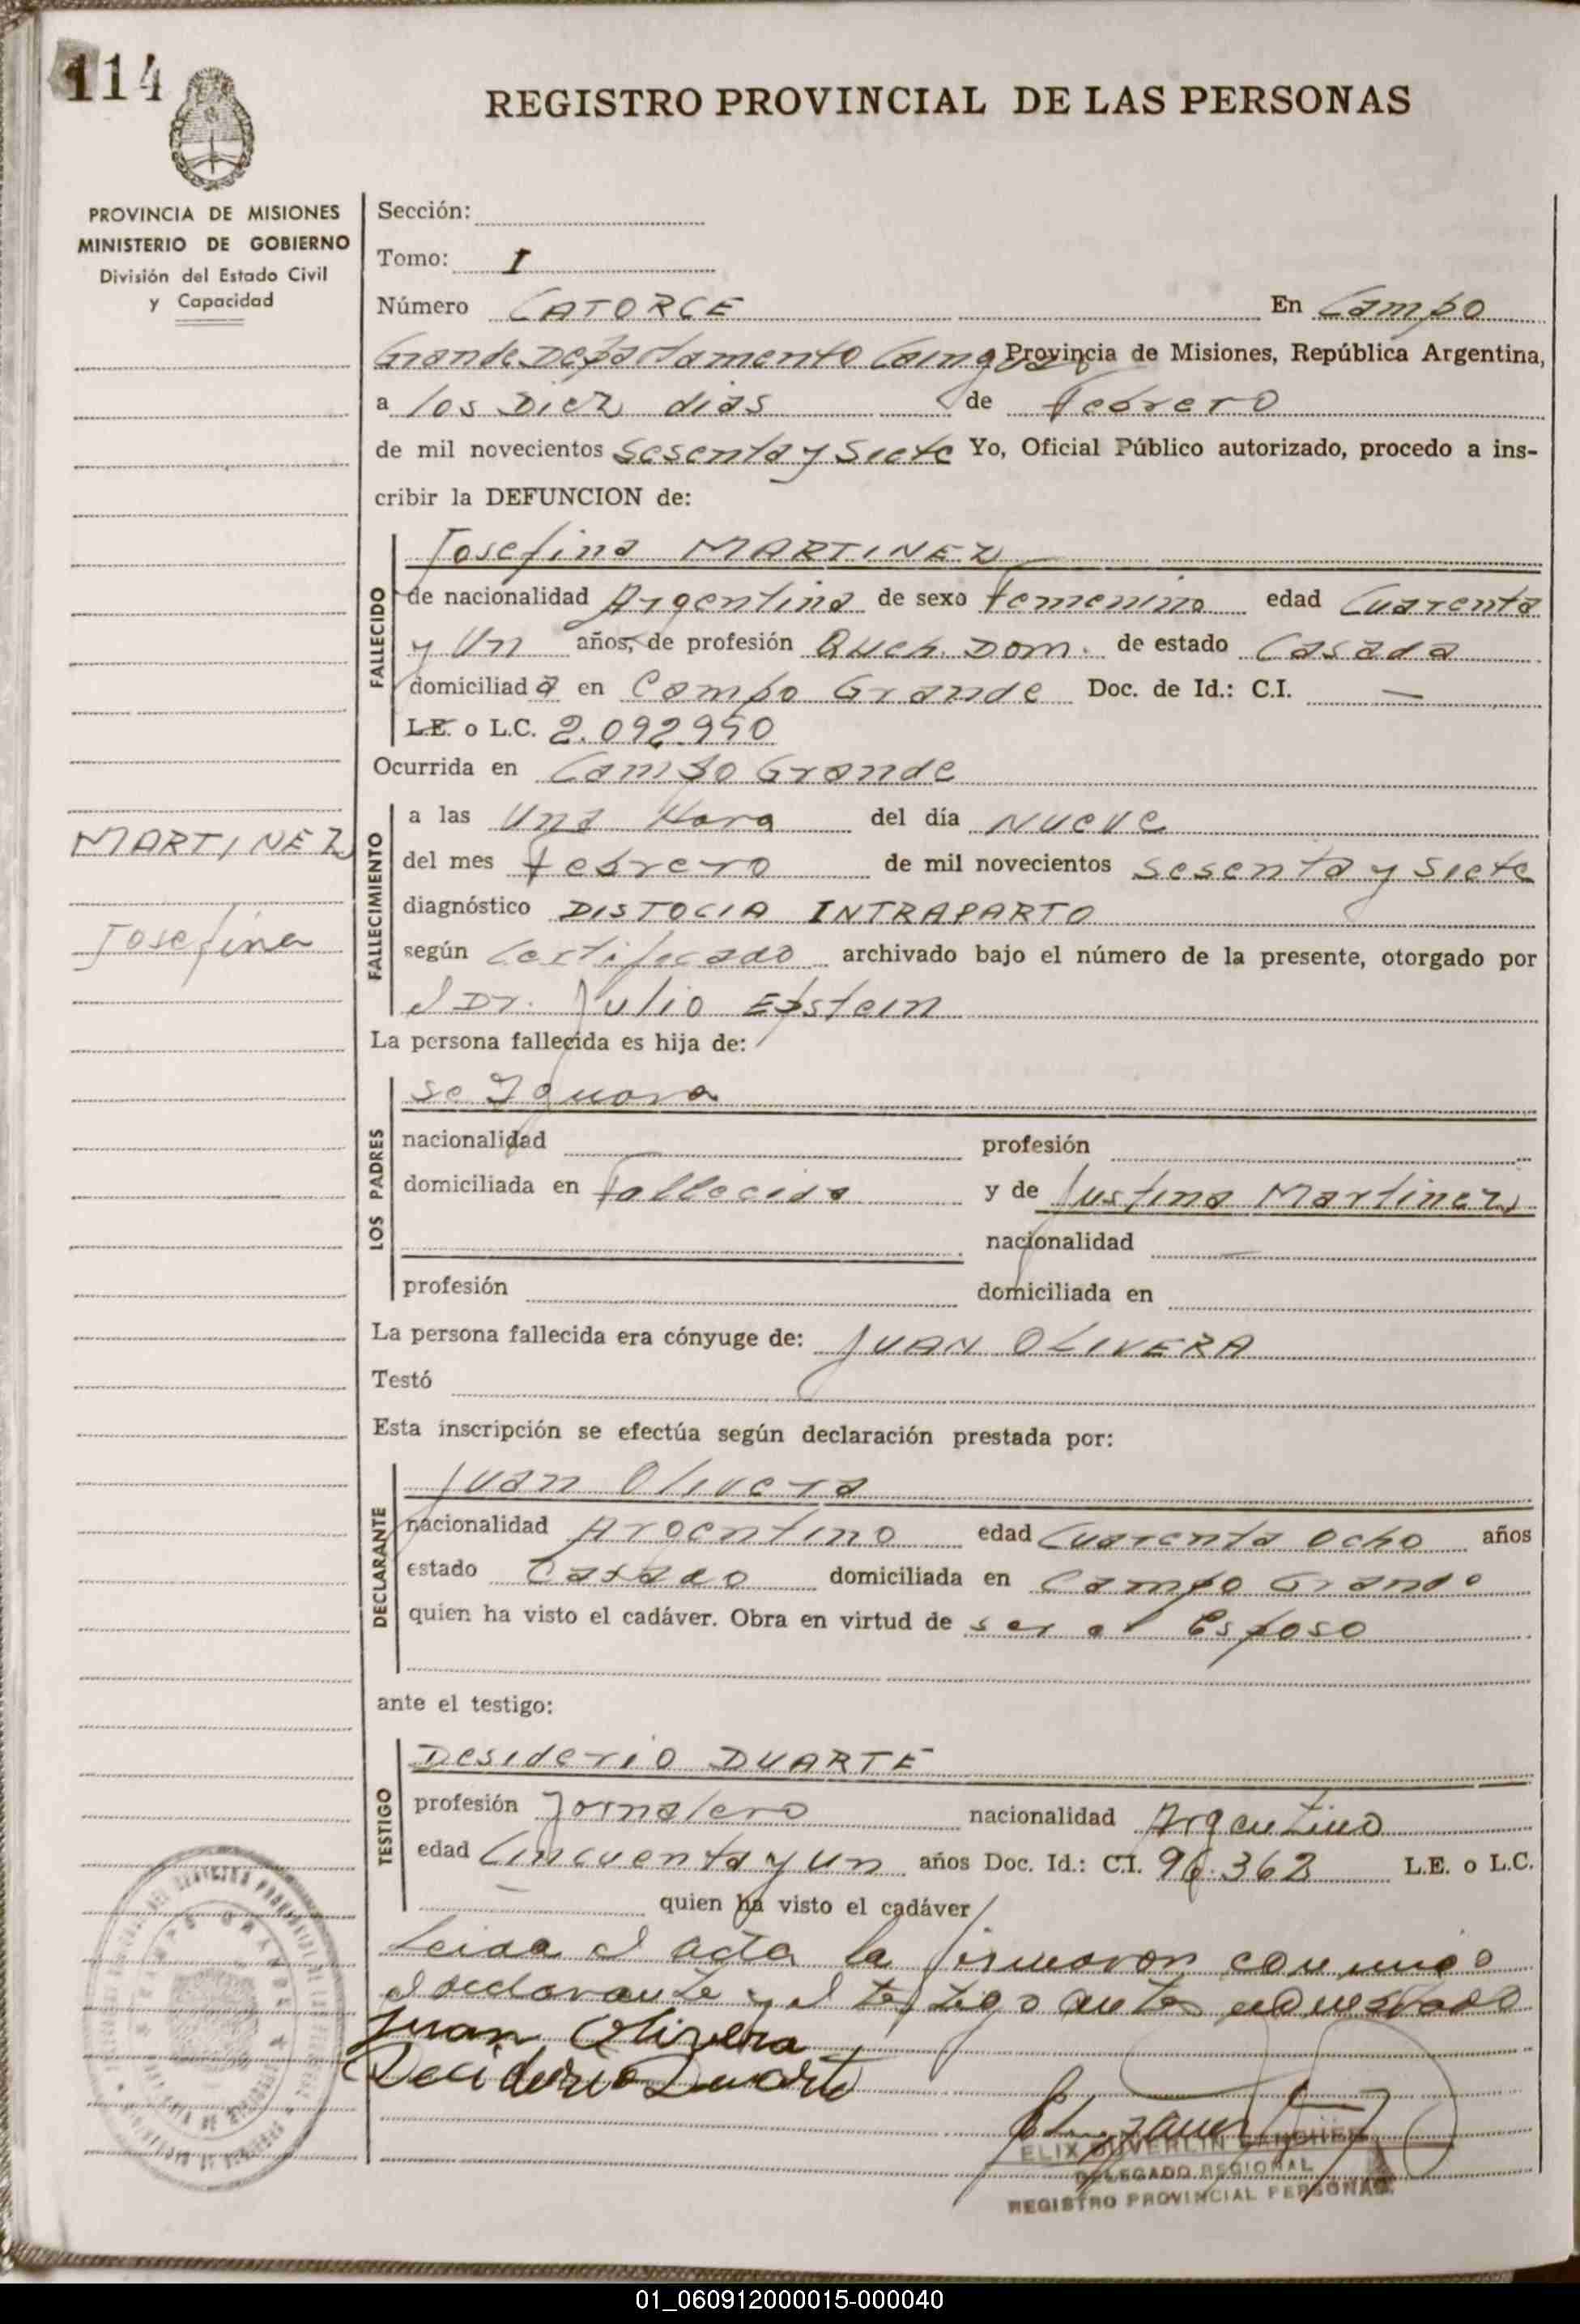 114
REGISTRO PROVINCIAL DE LAS PERSONAS
PROVINCIA DE MISIONES
MINISTERIO DE GOBIERNO
División del Estado Civil
y Capacidad
Sección:
Tomo: I
Número CATORCE En Campo
Grande Departamento Provincia de Misiones, República Argentina,
a los Diez dias de Febrero
de mil novecientos Sesenta y Siete Yo, Oficial Público autorizado, procedo a ins-
cribir la DEFUNCION de:
FALLECIDO
Josefina MARTINEZ
de nacionalidad Argentina de sexo Femenino edad Cuarenta
y Un años, de profesión Queh. Dom. de estado Casada
domiciliada en Campo Grande Doc. de Id.: C.I. —
L.E. o L.C. 2.092.950
Ocurrida en Campo Grande
MARTINEZ
Josefina
FALLECIMIENTO
a las Una Hora del día Nueve
del mes Febrero de mil novecientos Sesenta y Siete
diagnóstico DISTOCIA INTRAPARTO
según Certificado archivado bajo el número de la presente, otorgado por
el Dr. Julio Epstein
La persona fallecida es hija de:
LOS PADRES
Se Ignora
nacionalidad profesión
domiciliada en Fallecida y de Justina Martinez
nacionalidad —
profesión domiciliada en
La persona fallecida era cónyuge de: JUAN OLIVERA
Testó
Esta inscripción se efectúa según declaración prestada por:
DECLARANTE
Juan Olivera
nacionalidad Argentino edad Cuarenta Ocho años
estado Casado domiciliada en Campo Grande
quien ha visto el cadáver. Obra en virtud de ser el Esposo
ante el testigo:
TESTIGO
Desiderio DUARTE
profesión Jornalero nacionalidad Argentino
edad Cincuenta y un años Doc. Id.: C.I. 96.362 L.E. o L.C.
— quien ha visto el cadáver
Leida el acta la firmaron conmigo
el declarante y el testigo antes
Juan Olivera
Deciderio Duarte
DELEGADO REGIONAL
REGISTRO PROVINCIAL PERSONAS
01_060912000015-000040